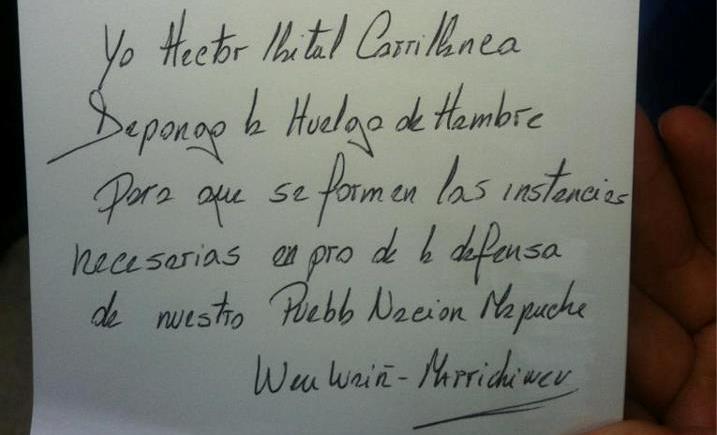 Yo Hector Llaitul Carrillanca
Depongo la Huelga de Hambre
Para que se formen las instancias
necesarias en pro de la defensa
de nuestro Pueblo Nacion Mapuche
Weuwaiñ - Marrichiweu